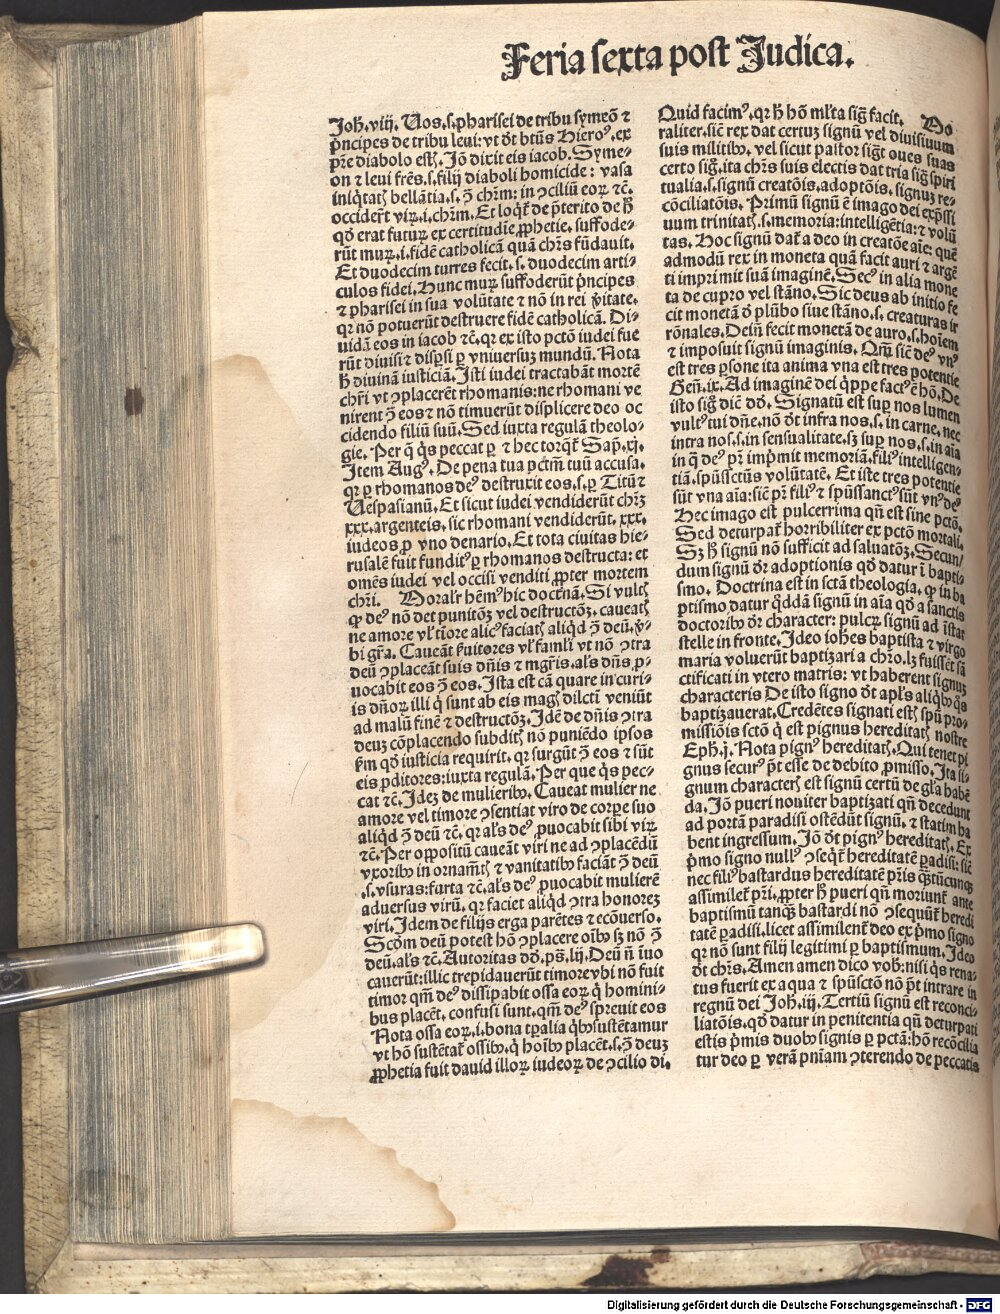 Feria sexta post Judica.
Joh̄. viij. Uos .s. pharisei de tribu symeō ⁊
p̄ncipes de tribu leui: vt d̄t btūs Hieroꝰ. ex
pr̄e diabolo estꝭ. Jō dixit eis iacob. Syme-
on ⁊ leui fr̄es .s. filij diaboli homicide: vasa
iniq̇tatꝭ bellātia .s. ꝯ̄ chr̄m: in ꝯciliū eoꝝ ⁊c̄.
occider̄t virꝝ .i. chr̄m. Et loq̇t̄ de p̄terito de h̄
qd̄ erat futurꝝ ex certitudīe ꝓphetie. suffode-
rūt murꝝ .i. fidē catholicā quā chr̄s fūdauit.
Et duodecim turres fecit .s. duodecim arti-
culos fidei. Hunc murꝝ suffoderūt p̄ncipes
⁊ pharisei in sua volūtate ⁊ nō in rei v̄itate.
qꝛ nō potuerūt destruere fidē catholicā. Di-
uidā eos in iacob ⁊c̄. qꝛ ex isto pctō iudei fue
rūt diuisi ⁊ disp̄si ꝑ vniuersuꝫ mundū. Nota
h̄ diuinā iusticiā. Isti iudei tractabāt mortē
chr̄i vt ꝯplacerēt rhomanis: ne rhomani ve
nirent ꝯ̄ eos ⁊ nō timuerūt displicere deo oc
cidendo filiū suū. Sed iuxta regulā theolo-
gie. Per q̄ q̇s peccat ꝑ ⁊ hec torq̄t̄ Sap̄. xj.
Item Augꝰ. De pena tua pctm̄ tuū accusa.
qꝛ ꝑ rhomanos deꝰ destruxit eos .s. ꝑ Titū ⁊
Uespasianū. Et sicut iudei vendiderūt chr̄ꝫ
xxx. argenteis. sic rhomani vendiderūt .xxx.
iudeos ꝓ vno denario. Et tota ciuitas hie-
rusalē fuit funditꝰ ꝑ rhomanos destructa: et
omēs iudei vel occisi venditi ꝓpter mortem
chr̄i. Moral̄r hēmꝰ hic doctrīnā. Si vultꝭ
ꝙ deꝰ nō det punitōꝫ vel destructōꝫ. caueatꝭ
ne amore vl̄ tīore alicꝰ faciatꝭ aliq̇d ꝯ̄ deū. v̄-
bi gr̄a. Caueāt ẜuitores vl̄ famĺi vt nō ꝯtra
deū ꝯplaceāt suis dn̄is ⁊ mgr̄is. al̄s dn̄s ꝓ-
uocabit eos ꝯ̄ eos. Ista est cā quare in curi-
is dn̄oꝝ illi q̇ sunt ab eis magꝭ dilcti veniūt
ad malū finē ⁊ destructōꝫ. Idē de dn̄is ꝯtra
deuꝫ cōplacendo subditꝭ nō puniēdo ipsos
ẜm qd̄ iusticia requirit. qꝛ surgūt ꝯ̄ eos ⁊ sūt
eis ꝓditores: iuxta regulā. Per que q̇s pec-
cat ⁊c̄. Ideꝫ de mulieribꝰ. Caueat mulier ne
amore vel timore ꝯsentiat viro de corꝑe suo
aliq̇d ꝯ̄ deū ⁊c̄. qꝛ al̄s deꝰ ꝓuocabit sibi virꝝ
⁊c̄. Per oppositū caueāt viri ne ad ꝯplacēdū
vxoribꝰ in ornam̄tꝭ ⁊ vanitatibꝰ faciāt ꝯ̄ deū
.s. vsuras: furta ⁊c̄. al̄s deꝰ ꝓuocabit mulierē
aduersus virū. qꝛ faciet aliq̇d ꝯtra honoreꝫ
viri. Idem de filijs erga parētes ⁊ ecōuerso.
Scd̄m deū potest hō ꝯplacere oībꝰ sꝫ nō ꝯ̄
deū. al̄s ⁊c̄. Autoritas dd̄. ps̄. lij. Deū n̄ īuo
cauerūt: illic trepidauerūt timore vbi nō fuit
timor qm̄ deꝰ dissipabit ossa eoꝝ q̇ homini-
bus placēt. confusi sunt. qm̄ deꝰ spreuit eos
Nota ossa eoꝝ .i. bona tꝑalia q̇bꝰ sustētamur
vt hō sustētat̄ ossibꝰ. q̇ hoībꝰ placēt .s. ꝯ̄ deuꝫ
ꝓphetia fuit dauid illoꝝ iudeoꝝ de ꝯcilio di.
Quid facimꝰ. qꝛ h̄ hō ml̄ta siḡ facit. Mo
raliter. sic̄ rex dat certuꝫ signū vel diuisiuum
suis militibꝰ. vel sicut pastor siḡt oues suas
certo siḡ. ita chr̄s suis electis dat tria siḡ spiri
tualia .s. signū creatōis. adoptōis. signuꝫ re-
cōciliatōis. Primū signū ē imago dei exp̄ssi
uum trinitatꝭ .s. memoria: intelligētia: ⁊ volū
tas. Hoc signū dat̄ a deo in creatōe aīe: quē
admodū rex in moneta quā facit auri ⁊ argē
ti imprimit suā imaginē. Secꝰ in alia mone
ta de cupro vel stāno. Sic deus ab initio fe
cit monetā d̄ plūbo siue stāno .s. creaturas ir
rōnales. Deīn fecit monetā de auro .s. hoīem
⁊ imposuit signū imaginis. Qm̄ sic̄ deꝰ vnꝰ
est tres ꝑsone ita anima vna est tres potentie
Gen̄. ix. Ad imaginē dei q̇ppe factꝰ ē hō. De
isto siḡ dic̄ dd̄. Signatū est suꝑ nos lumen
vultꝰ tui dn̄e. nō d̄t infra nos .s. in carne. nec
intra nos .s. in sensualitate. sꝫ suꝑ nos .s. in aīa
in q̄ deꝰ pr̄ imp̄mit memoriā. filiꝰ intelligen-
tiā. spūssctūs volūtatē. Et iste tres potentie
sūt vna aīa: sic̄ pr̄ filiꝰ ⁊ spūssanctꝰ sūt vnꝰ deꝰ
Hec imago est pulcerrima qn̄ est sine pctō.
Sed deturpat̄ horribiliter ex pctō mortali.
Sꝫ h̄ signū nō sufficit ad saluatōꝫ. Secun-
dum signū d̄r adoptionis qd̄ datur ī bapti-
smo. Doctrina est in sctā theologia. ꝙ in ba
ptismo datur q̇ddā signū in aīa qd̄ a sanctis
doctoribꝰ d̄r character: pulcꝝ signū ad īstar
stelle in fronte. Ideo ioh̄es baptista ⁊ virgo
maria voluerūt baptizari a chr̄o. lꝫ fuissēt sā
ctificati in vtero matris: vt haberent signuꝫ
characteris De isto signo d̄t apl̄s aliq̇bꝰ q̄s
baptizauerat. Credētes signati estꝭ spū pro-
missiōis sctō q̇ est pignus hereditatꝭ nostre
Eph̄. j. Nota pignꝰ hereditatꝭ. Qui tenet pi
gnus securꝰ p̄t esse de debito ꝓmisso. Ita si-
gnum characterꝭ est signū certū de gl̄a habē
da. Jō pueri nouiter baptizati qn̄ decedunt
ad portā paradisi ostēdūt signū. ⁊ statim ha
bent ingressum. Jō d̄t pignꝰ hereditatꝭ. Ex
p̄mo signo nullꝰ ꝯseq̄t̄ hereditatē ꝑadisi: sic̄
nec filiꝰ bastardus hereditatē pr̄is q̄ꝫtūcunqꝫ
assimilet̄ pr̄i. ꝓpter h̄ pueri qn̄ moriunt̄ ante
baptismū tanqꝫ bastardi nō ꝯsequūt̄ heredi
tatē ꝑadisi. licet assimilent̄ deo ex p̄mo signo
qꝛ nō sunt filij legitimi ꝑ baptismum. Ideo
d̄t chr̄s. Amen amen dico vob̄: nisi q̇s rena-
tus fuerit ex aqua ⁊ spūsctō nō p̄t intrare in
regnū dei Joh̄. iij. Tertiū signū est reconci-
liatōis. qd̄ datur in penitentia qn̄ deturpati
estis p̄mis duobꝰ signis ꝑ pctā: hō recōcilia
tur deo ꝑ verā pn̄iam ꝯterendo de peccatis
Digitalisierung gefördert durch die Deutsche Forschungsgemeinschaft - DFG